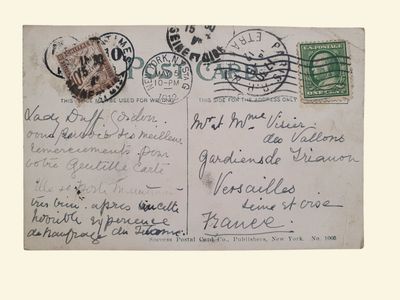 POST CARD
THIS SPACE FOR THE ADDRESS ONLY
NEW YORK, N.Y.
MAY 5
10-PM
1912
PARIS
ETRA
SEINE ET OISE
U.S. POSTAGE
ONE CENT
Lady Duff Gordon
vous les meilleurs
remerciements pour
votre Gentille Carte
Elle se porte
très bien après cette
horrible expérience
de Naufrage du Titanic
Mr et Mme Visier
des Vallons
Gardiens de Trianon
Versailles
Seine et Oise
France
Success Postal Card Co., Publishers, New York. No. 1005